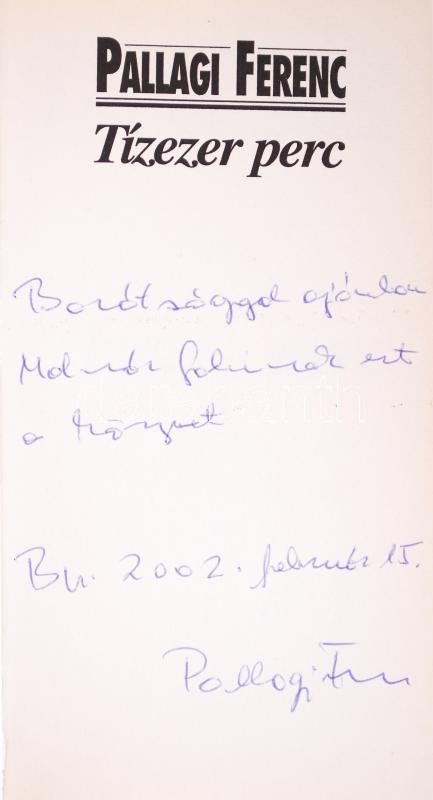 PALLAGI FERENC
Tízezer perc
Barátsággal ajánlom
Molnár Gabinak ezt
a könyvet
Bp. 2002. február 15.
Pallagi F